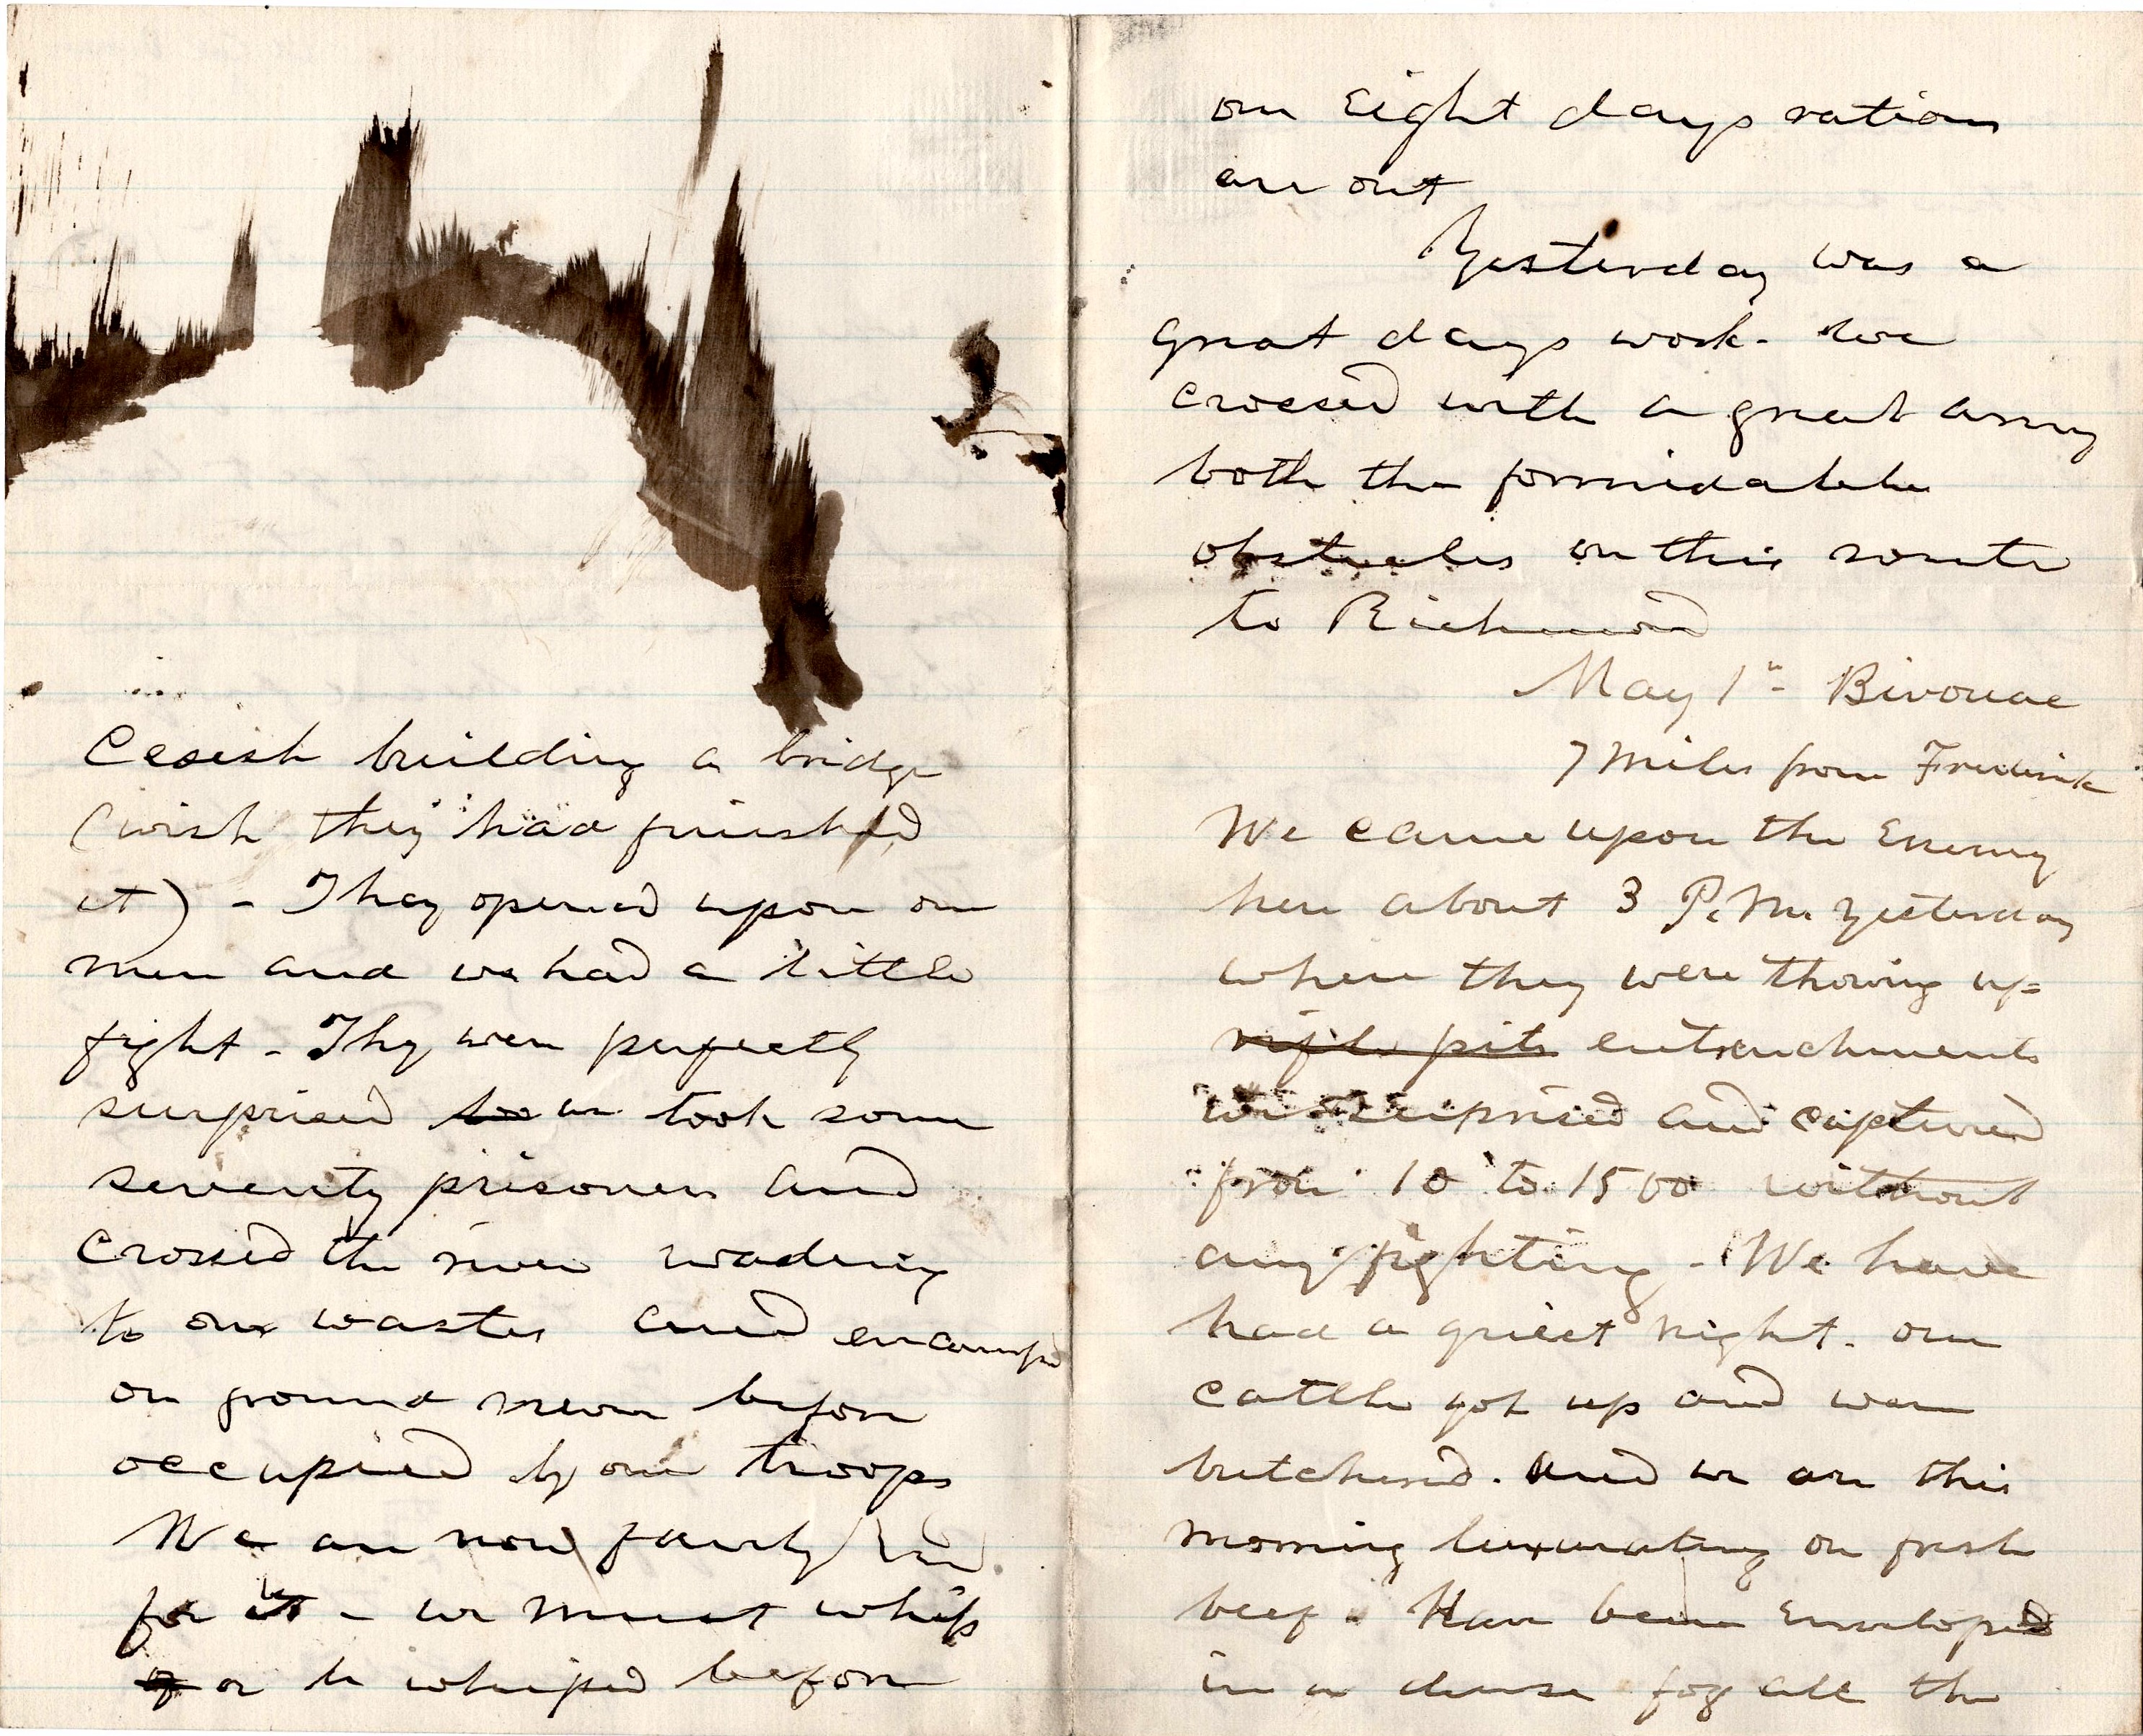 Cesesh building a bridge
(wish they had finished
it) - They opened upon our
men and we had a little
fight - Thy were perfectly
surprised we took some
seventy prisoners and
crossed the river wading
to our wastes and encampd
on ground never before
occupied by our troops
We are now fairly in
for it - we must whip
or be whiped before
our Eight days rations
are out
Yesterday was a
great days work - We
crossed with a great army
both the formidable
obstacles on this route
to Richmond
May 1st - Bivouac
7 Miles from Frederick
We came upon the Enemy
here about 3 P.M. yesterday
where they were throwing up=
rifle pits entrenchments
we surprised and captured
from 10 to 1500 without
any fighting - We have
had a quiet night - our
cattle got up and were
butchered. And we are this
morning luxuriating on fresh
beef. Have been Enveloped
in a dense fog all the